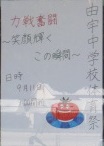 由宇中学校体育祭
力戦奮闘
～笑顔輝く
この瞬間～
日時
9月11日